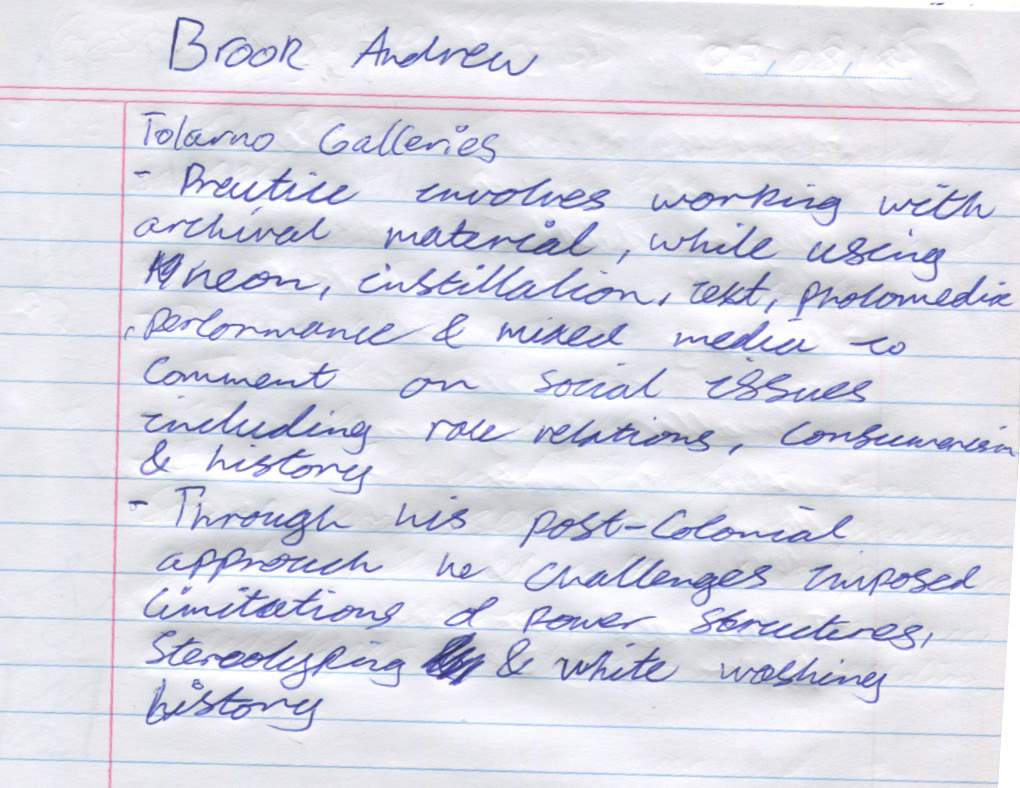 Brook Andrew
Tolarno Galleries
- Practice involves working with
archival material, while using
neon, instillation, text, photomedia
, performance & mixed media to
Comment on social issues
including race relations, Consumerism
& history
- Through his post-Colonial
approach he challenges imposed
limitations of power structures,
Stereotyping & white washing
history